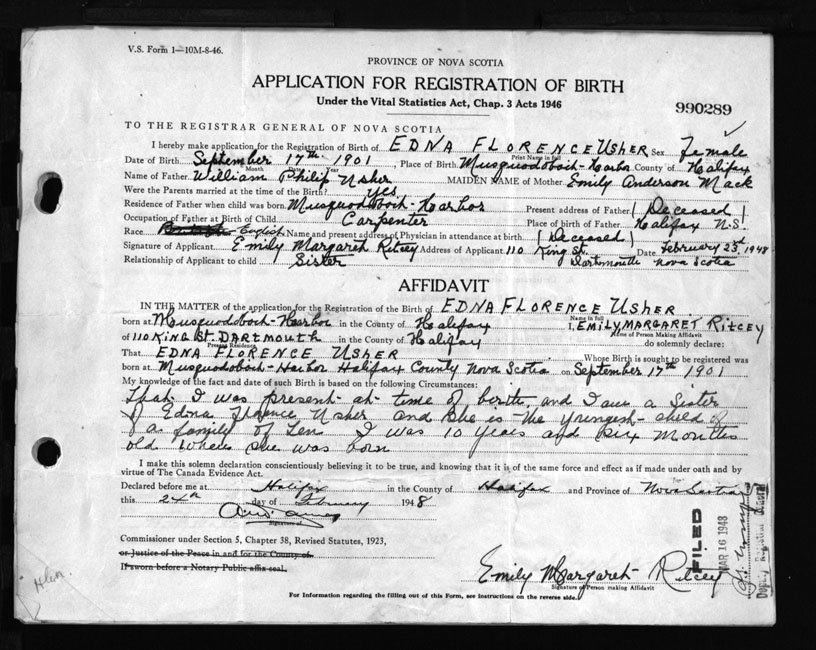 V.S. Form 1—10M-8-46.
PROVINCE OF NOVA SCOTIA
APPLICATION FOR REGISTRATION OF BIRTH
Under the Vital Statistics Act, Chap. 3 Acts 1946
990289
TO THE REGISTRAR GENERAL OF NOVA SCOTIA
I hereby make application for the Registration of Birth of EDNA FLORENCE USHER Sex female
Print Name in full
Date of Birth September 17th 1901, Place of Birth Musquodoboit-Harbor County of Halifax
Month Year
Name of Father William Philip Usher MAIDEN NAME of Mother Emily Anderson Mack
Were the Parments married at the time of the Birth? Yes
Residence of Father when child was born Musquodoboit-Harbor Present address of Father (Deceased)
Occupation of Father at Birth of Child Carpenter Place of birth of Father Halifax N.S.
Race English Name and present address of Physician in attendance at birth (Deceased)
Signature of Applicant Emily Margaret Ritcey Address of Applicant 110 King St. Date February 23rd 1948
Relationship of Applicant to child Sister Dartmouth Nova Scotia
AFFIDAVIT
IN THE MATTER of the application for the Registration of the Birth of EDNA FLORENCE USHER
Name in full
born at Musquodoboit-Harbor in the County of Halifax I, EMILY MARGARET RITCEY
Name of Person Making Affidavit
of 110 KING ST. DARTMOUTH in the County of Halifax do solemnly declare:
Present Residence
That EDNA FLORENCE USHER Whose Birth is sought to be registered was
born at Musquodoboit-Harbor Halifax County Nova Scotia on September 17th 1901
My knowledge of the fact and date of such Birth is based on the following Circumstances:
That I was present at time of birth and I am a Sister
of Edna Florence Usher and she is the youngest child of
a family of ten I was 10 years and six months
old when she was born
I make this solemn declaration conscientiously believing it to be true, and knowing that it is of the same force and effect as if made under oath and by
virtue of The Canada Evidence Act.
Declared before me at Halifax in the County of Halifax and Province of Nova Scotia
this 24th day of February 1948
Signature of
Commissioner under Section 5, Chapter 38, Revised Statutes, 1923,
or Justice of the Peace in and for the County of.
If sworn before a Notary Public affix seal.
Emily Margaret Ritcey
Signature of Person making Affidavit
For Information regarding the filling out of this Form, see instructions on the reverse side.
FILED
MAR 16 1948
Deputy Registrar General